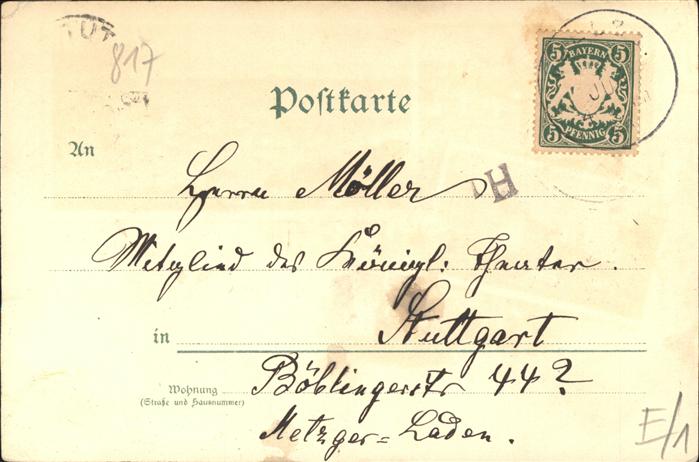 TUT
817
5 BAYERN 5
5 PFENNIG 5
Postkarte
An
Herrn Möller
H
Mitglied des Königl: Theater.
in Stuttgart
Wohnung Böblingerstr 44?
(Straße und Hausnummer)
Metzger=Laden.
E/1